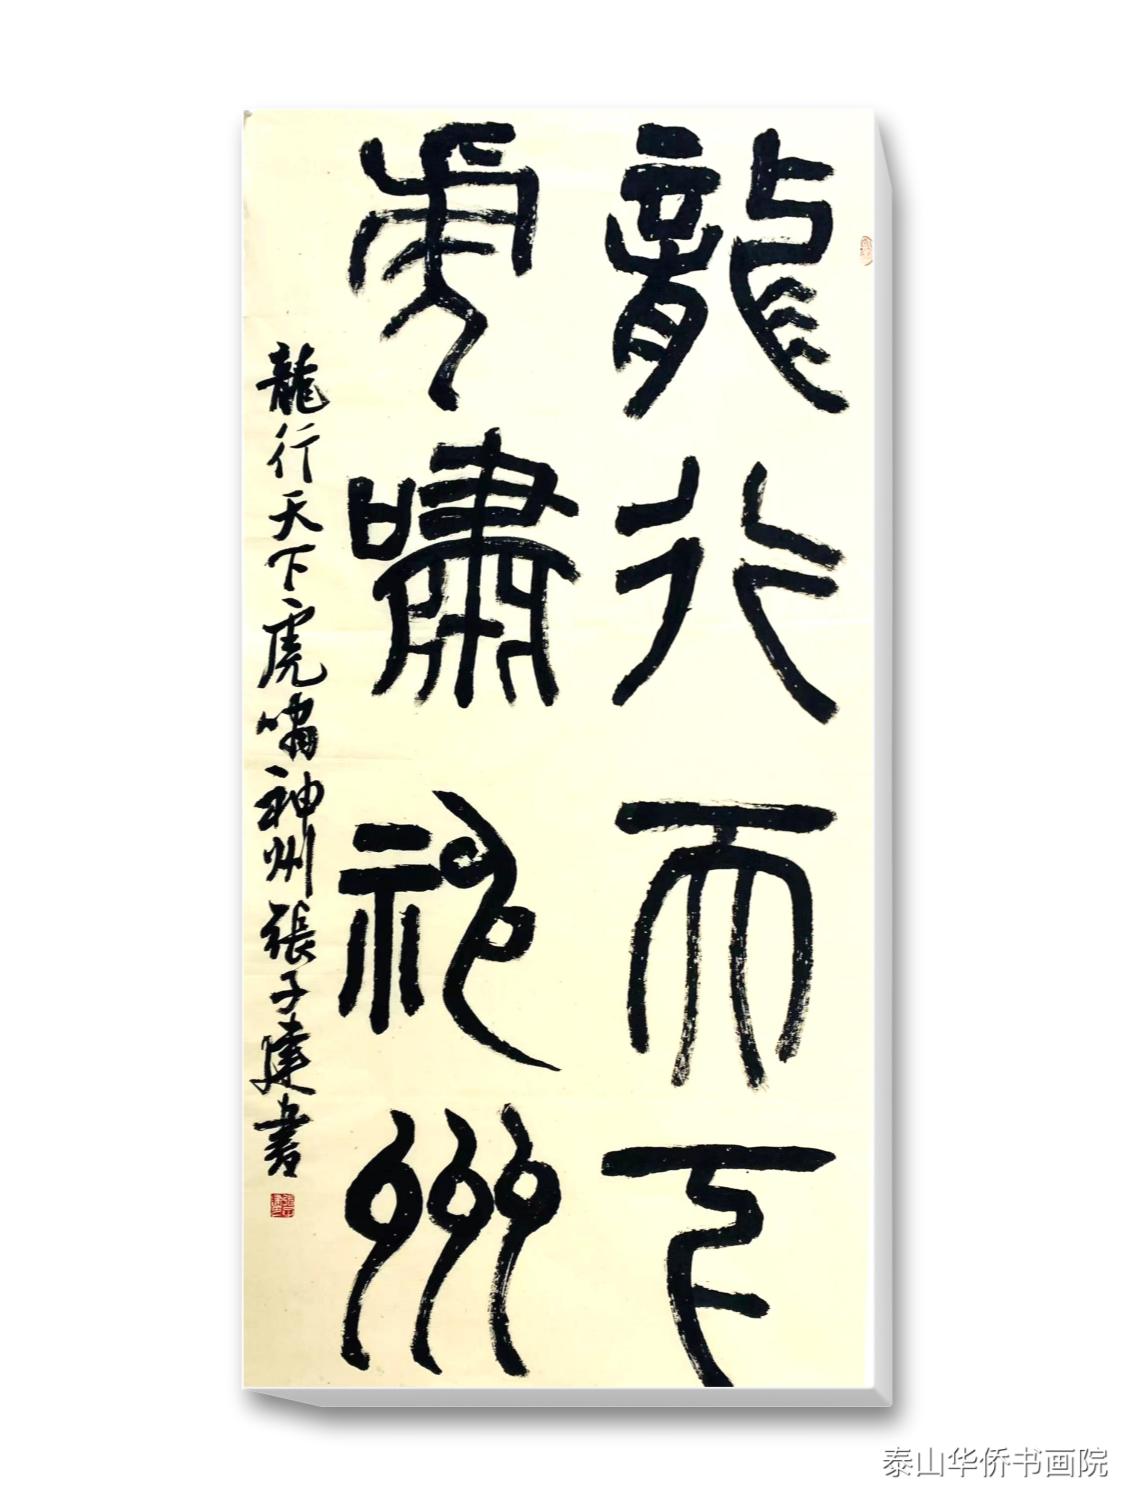 龍行天下
虎嘯神州
龍行天下虎嘯神州張子建書
泰山华侨书画院